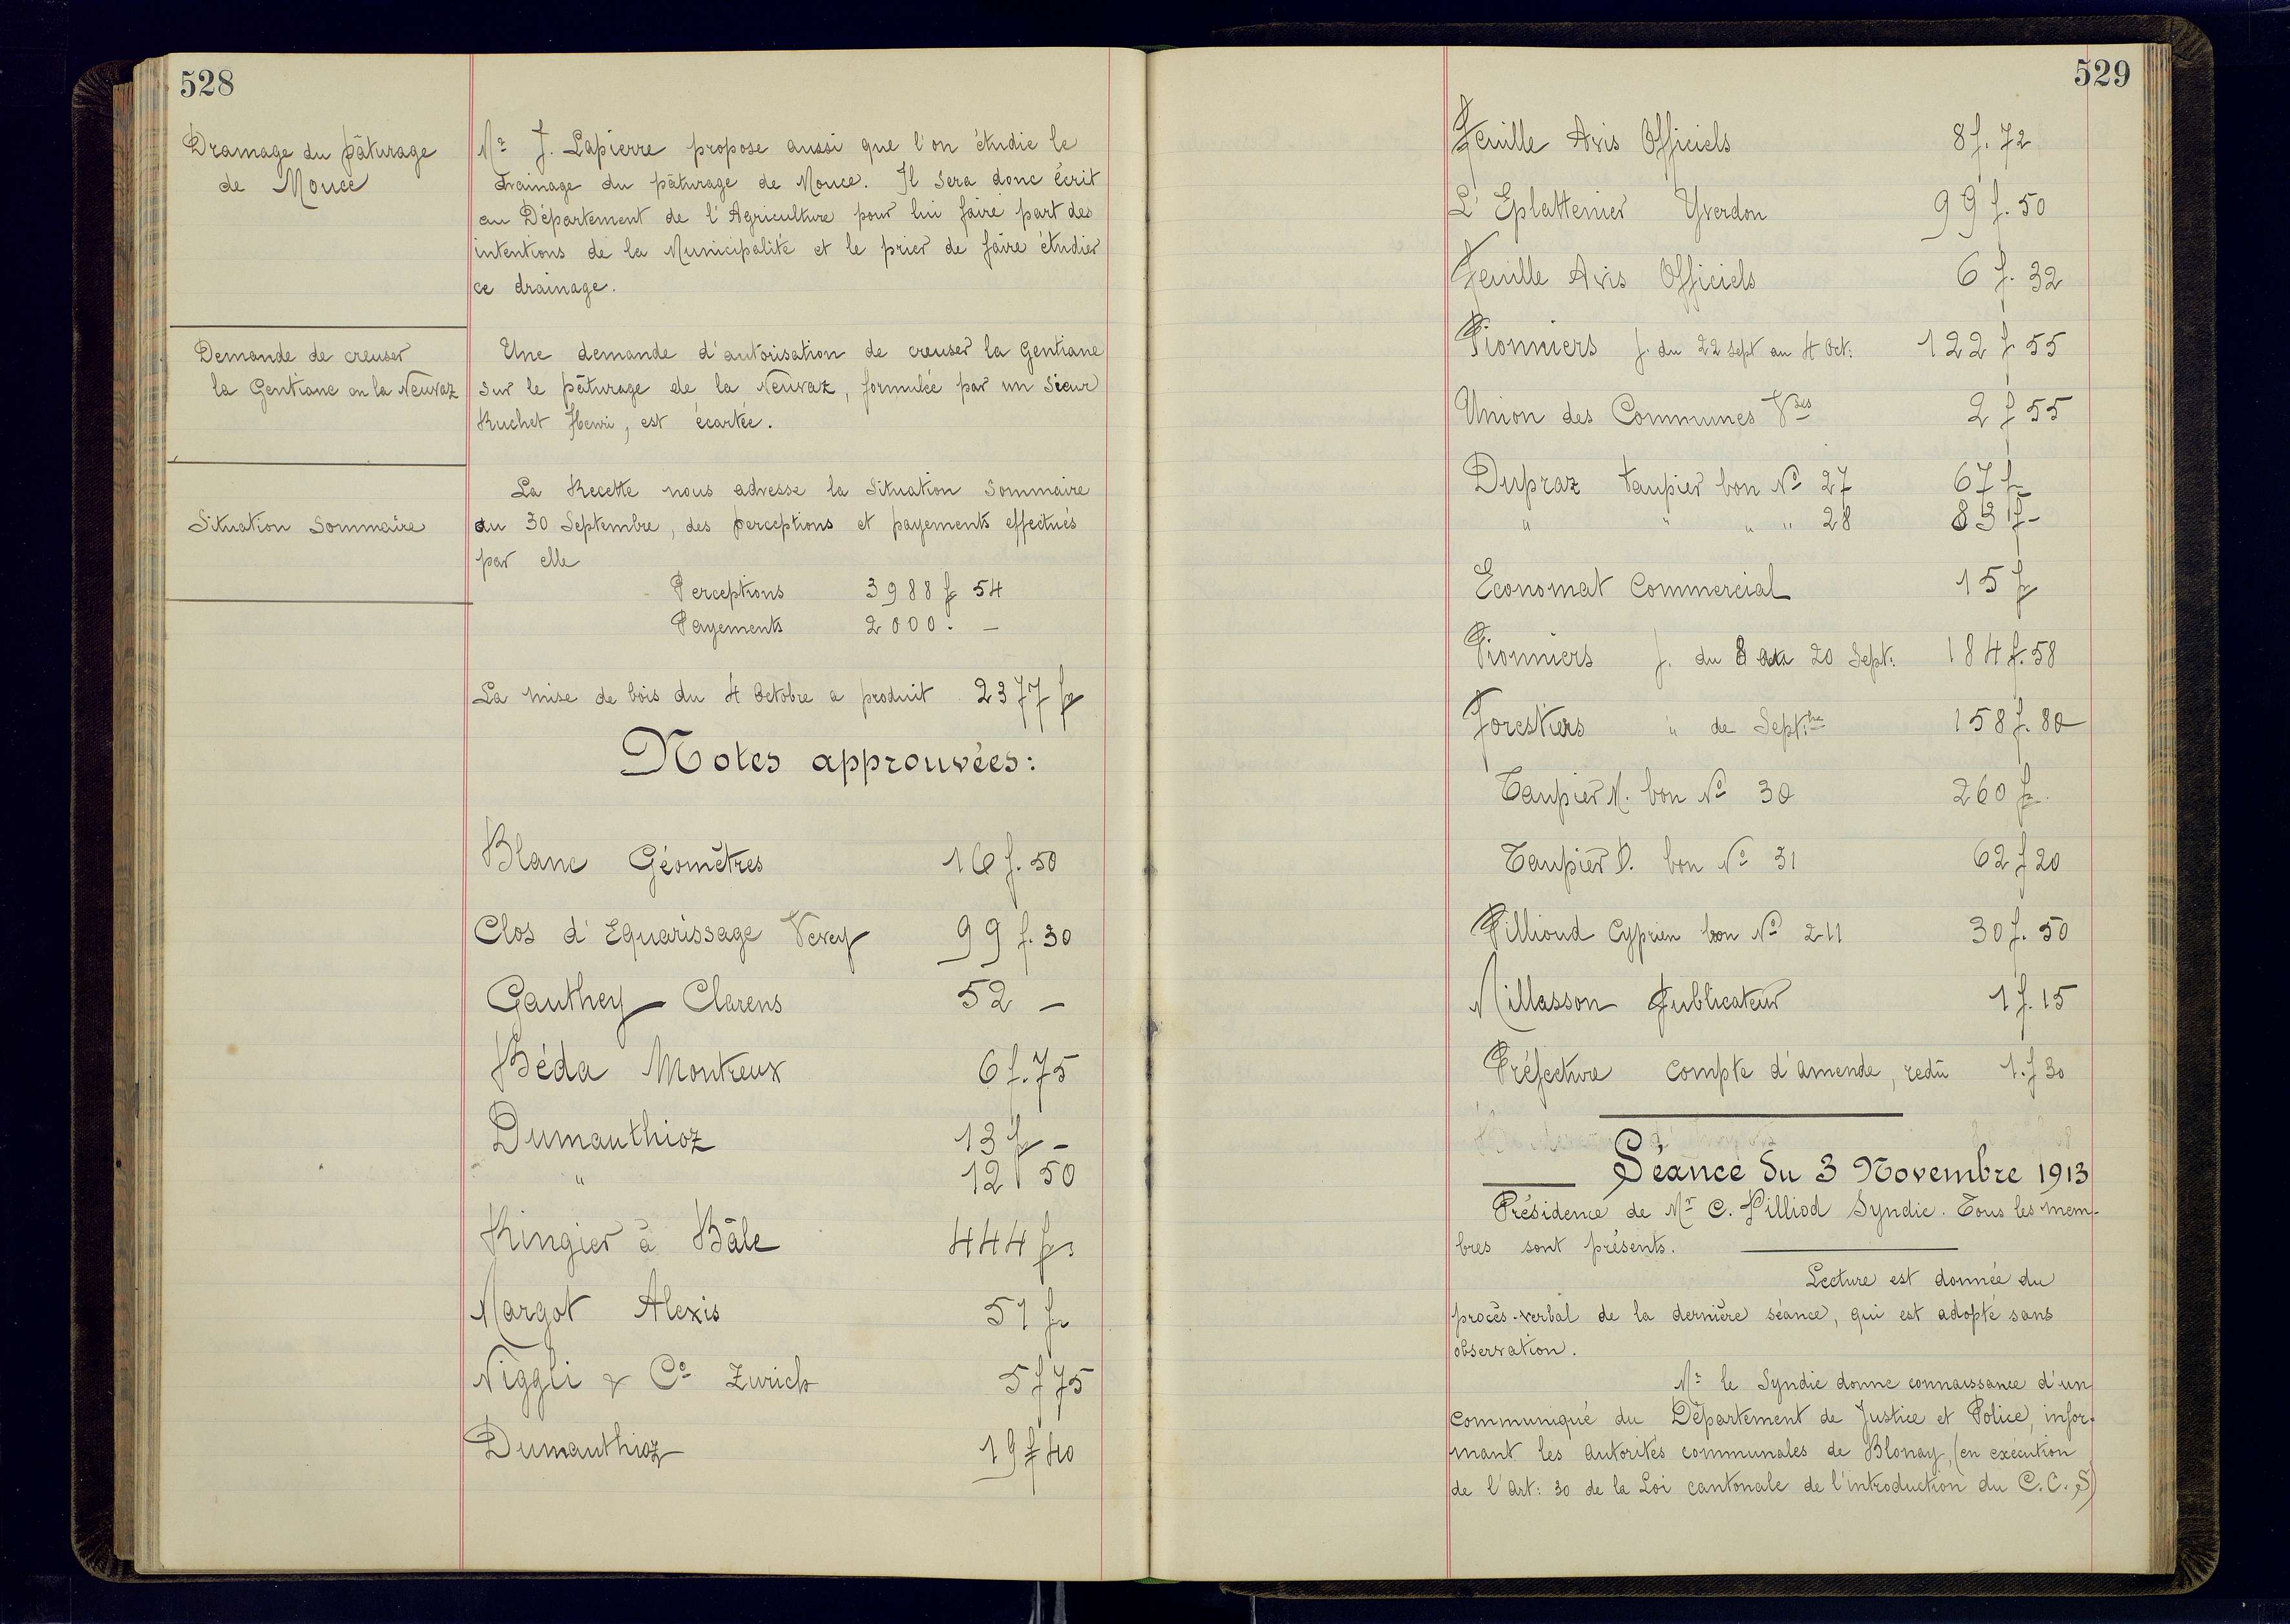 528
Drainage du pâturage
de Mouce
Mr J. Lapierre propose aussi que l'on étudie le
drainage du pâturage de Mouce. Il sera donc écrit
au Département de l'Agriculture pour lui faire part des
intentions de la Municipalité et le prier de faire étudier
ce drainage.
Demande de creuser
la Gentiane en la Neuvaz
Une demande d'autorisation de creuser la Gentiane
sur le pâturage de la Neuvaz, formulée par un Sieur
Ruchet Henri, est écartée.
Situation Sommaire
La Recette nous adresse la Situation Sommaire
au 30 Septembre, des perceptions et payements effectués
par elle
Perceptions 3988 f 54
Payements 2000. —
La mise de bois du 4 Octobre a produit 2377 fr
Notes approuvées:
Blanc Géomètres 16 f. 50
Clos d'Equarissage Vevey 99 f. 30
Gauthey Clarens 52 —
Béda Montreux 6 f. 75
Dumauthioz 13 fr –
" 12 f 50
Ringier à Bâle 444 frs
Margot Alexis 51 fr
Niggli & Co Zurich 5 f 75
Dumauthioz 19 f 40
529
Feuille Avis Officiels 8 f. 72
L'Eplattenier Yverdon 99 f. 50
Feuille Avis Officiels 6 f. 32
Pionniers j. du 22 sept au 4 Oct: 122 f 55
Union des Communes Vses 2 f 55
Dupraz taupier bon No 27 67 fr
" " " " 28 83 f–
Economat Commercial 15 fr
Pionniers j. du 8 au 20 Sept: 184 f. 58
Forestiers " de Septbre 158 f. 80
Taupier M. bon No 30 260 fr.
Taupier D. bon No 31 62 f 20
Pilliond Cyprien bon No 211 30 f. 50
Millasson Publicateur 1 f. 15
Préfecture compte d'amende, redû 1. f 30
Séance du 3 Novembre 1913
Présidence de Mr C. Pilliod Syndic. Tous les mem-
bres sont présents.
Lecture est donnée du
procès-verbal de la dernière séance, qui est adopté sans
observation.
Mr le Syndic donne connaissance d'un
communiqué du Département de Justice et Police, infor-
mant les autorités communales de Blonay, (en exécution
de l'Art: 30 de la Loi cantonale de l'introduction du C.C.S)